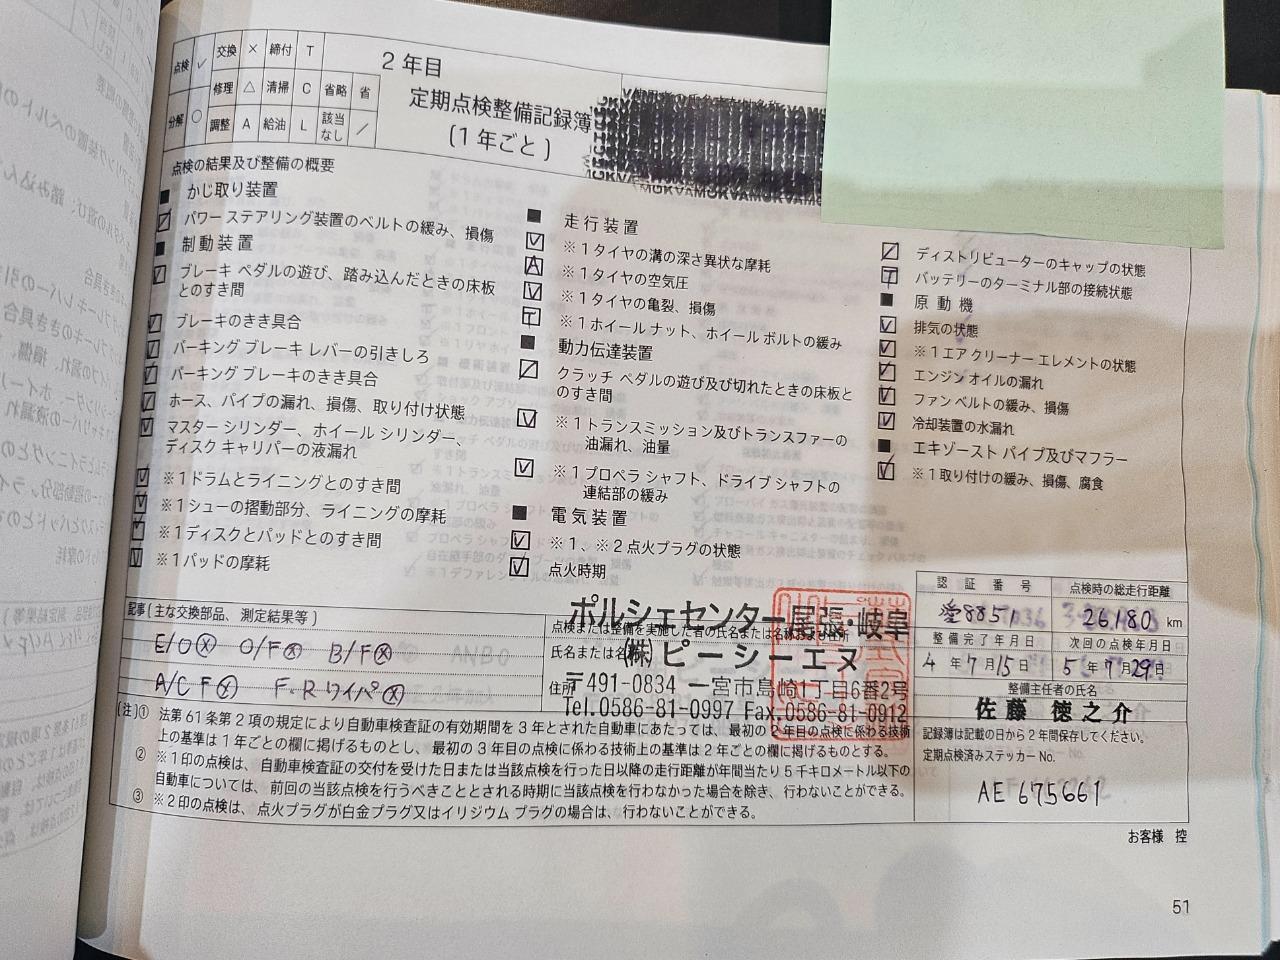 点検 ✓ 交換 × 締付 T
分解 ○ 修理 △ 清掃 C 省略 省
調整 A 給油 L 該当なし ／
2年目
定期点検整備記録簿
(1年ごと)
点検の結果及び整備の概要
■ かじ取り装置
パワー ステアリング装置のベルトの緩み、損傷
■ 制動装置
ブレーキ ペダルの遊び、踏み込んだときの床板
とのすき間
ブレーキのきき具合
パーキング ブレーキ レバーの引きしろ
パーキング ブレーキのきき具合
ホース、パイプの漏れ、損傷、取り付け状態
マスター シリンダー、ホイール シリンダー、
ディスク キャリパーの液漏れ
※1ドラムとライニングとのすき間
※1シューの摺動部分、ライニングの摩耗
※1ディスクとパッドとのすき間
※1パッドの摩耗
■ 走行装置
※1タイヤの溝の深さ異状な摩耗
※1タイヤの空気圧
※1タイヤの亀裂、損傷
※1ホイール ナット、ホイール ボルトの緩み
■ 動力伝達装置
クラッチ ペダルの遊び及び切れたときの床板と
のすき間
※1トランスミッション及びトランスファーの
油漏れ、油量
※1プロペラ シャフト、ドライブ シャフトの
連結部の緩み
■ 電気装置
※1、※2点火プラグの状態
点火時期
ディストリビューターのキャップの状態
バッテリーのターミナル部の接続状態
■ 原動機
排気の状態
※1エア クリーナー エレメントの状態
エンジン オイルの漏れ
ファン ベルトの緩み、損傷
冷却装置の水漏れ
■ エキゾースト パイプ及びマフラー
※1取り付けの緩み、損傷、腐食
記事(主な交換部品、測定結果等)
E/O ⓧ O/F ⓧ B/F ⓧ
A/C F F.R ワイパー ⓧ
点検または整備を実施した者の氏名または名称および住所
氏名または
住所
ポルシェセンター尾張・岐阜
㈱ピーシーエヌ
〒491-0834 一宮市島崎一丁目6番2号
Tel.0586-81-0997 Fax.0586-81-0912
認証番号 点検時の総走行距離
愛8851 26,180 km
整備完了年月日 次回の点検年月日
4年7月15日 5年7月29日
整備主任者の氏名
佐藤 徳之介
記録簿は記載の日から2年間保存してください。
定期点検済みステッカー No.
AE 675661
(注)① 法第61条第2項の規定により自動車検査証の有効期間を3年とされた自動車にあたっては、最初の2年目の点検に係わる技術
上の基準は1年ごとの欄に掲げるものとし、最初の3年目の点検に係わる技術上の基準は2年ごとの欄に掲げるものとする。
② ※1印の点検は、自動車検査証の交付を受けた日または当該点検を行った日以降の走行距離が年間当たり5千キロメートル以下の
自動車については、前回の当該点検を行うべきこととされる時期に当該点検を行わなかった場合を除き、行わないことができる。
③ ※2印の点検は、点火プラグが白金プラグ又はイリジウム プラグの場合は、行わないことができる。
お客様 控
51